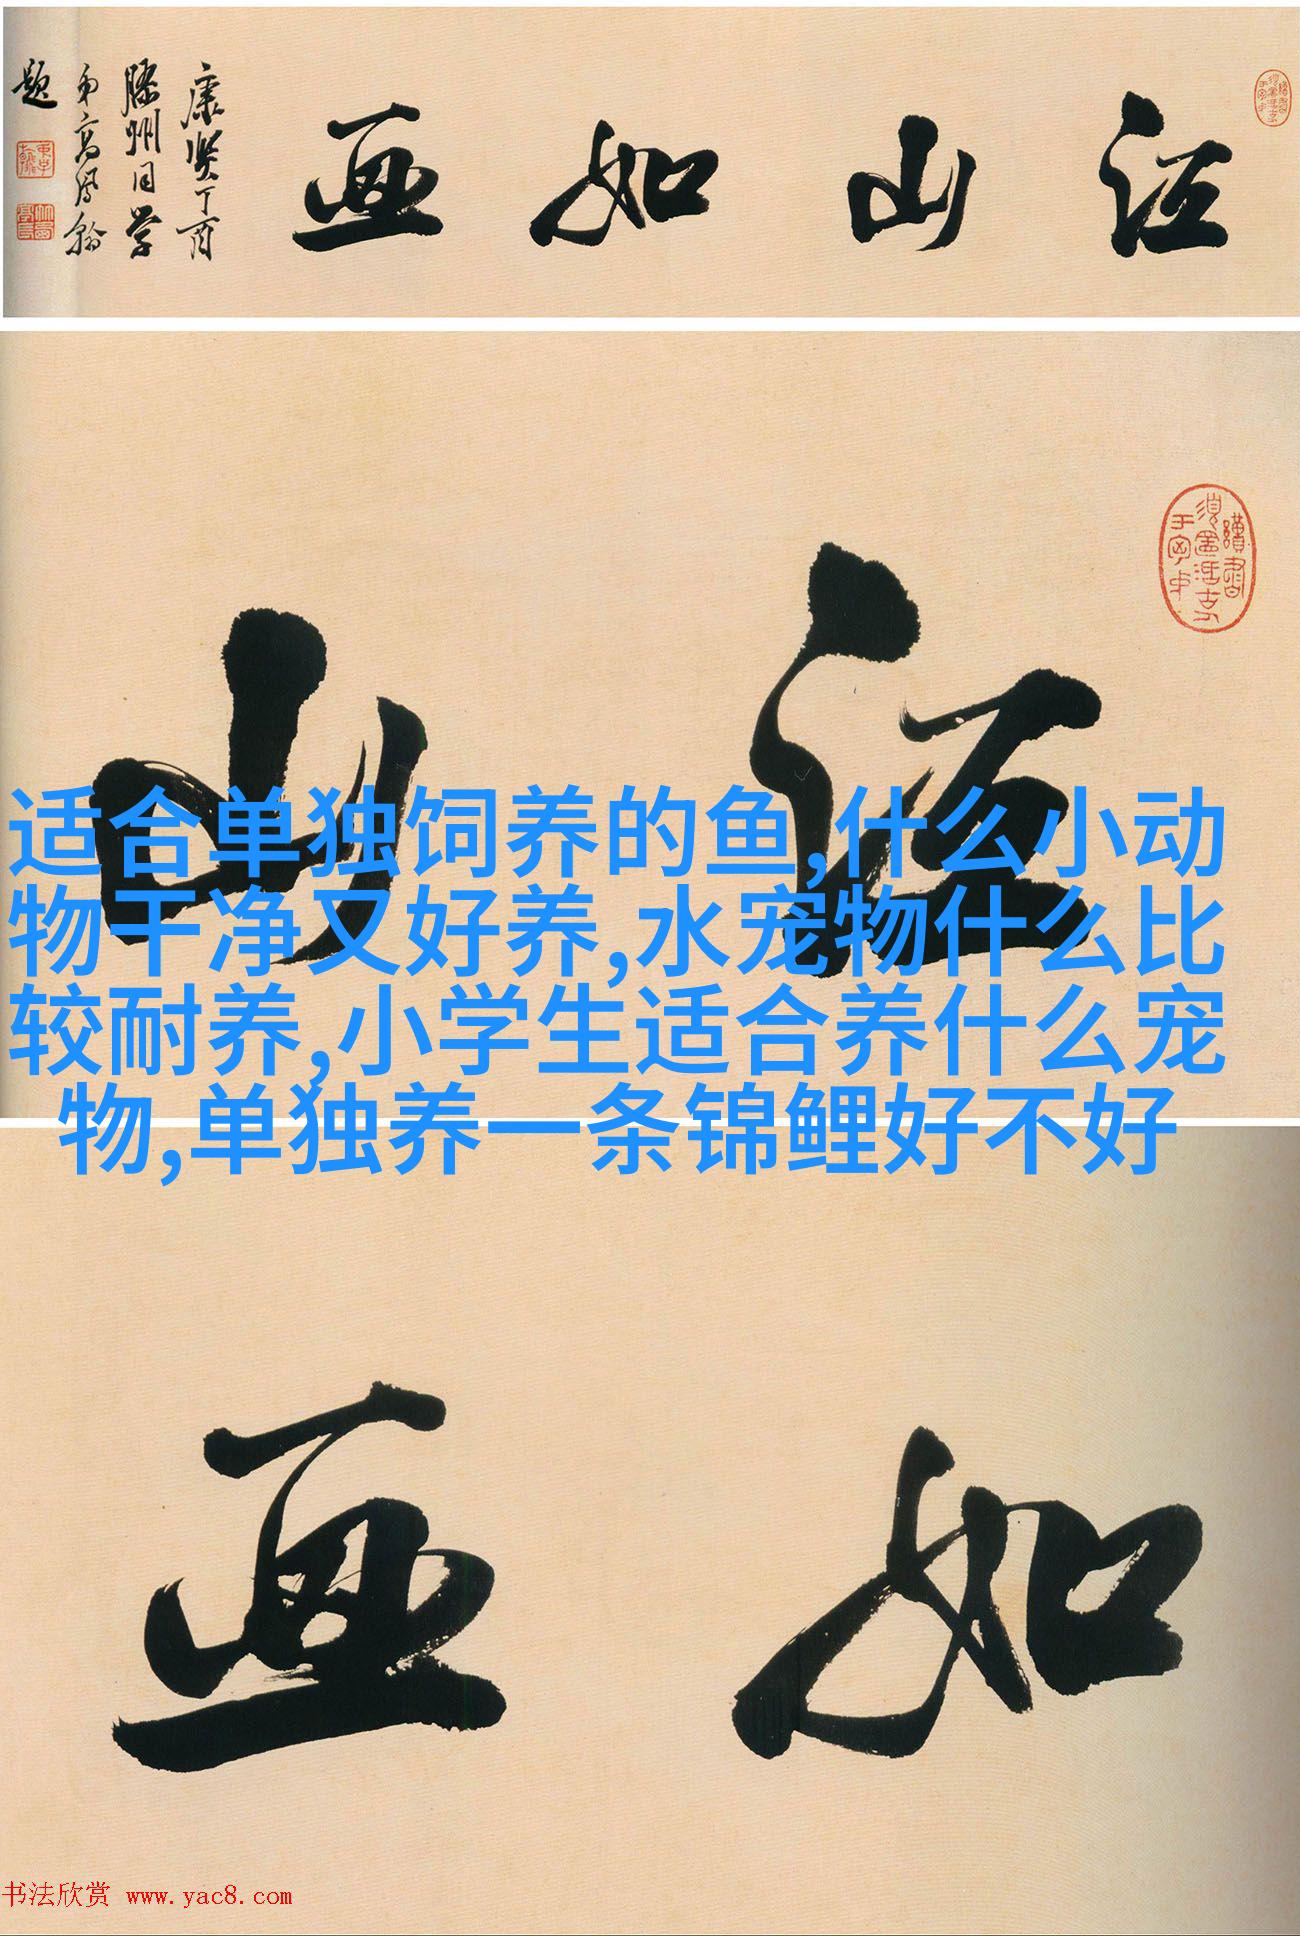 江山如画
康熙丁酉
滕州同学
弟高凤翰
题
适合单独饲养的鱼,什么小动
物干净又好养,水宠物什么比
较耐养,小学生适合养什么宠
物,单独养一条锦鲤好不好
江山
如画
书法欣赏 www.yac8.com